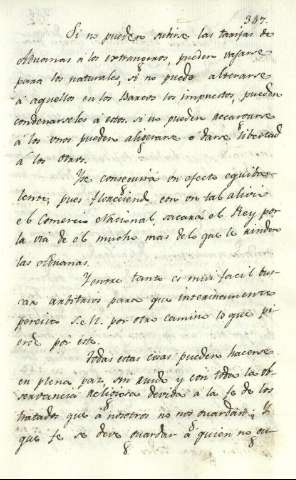 347.
Si no pueden subirse las tarifas de
Aduanas á los extrangeros, pueden vajarse
para los naturales, si no puede
á aquellos en los Barcos los impuestos, pueden
condonarselos á estos; si no pueden recargarse
á los unos pueden aligerarse o darse libertad
á los otros.
Se conseguirá un efecto equiba-
lente, pues floreciend. con un tal alivio
el Comercio Nacional, sacará el Rey por
la via de el mucho mas de lo que le rinden
las Aduanas.
Y entre tanto es mui facil bus-
car arbitrios para que interinamente
perciva S.M. por otro camino lo que pi-
erde por éste.
Todas estas cosas pueden hacerse
en plena paz, sin ruido y con toda la ob-
servancia religiosa devida á la fe de los
tratados que á nosotros no nos guardan. Y
que fe se deve guardar á quien no gu-